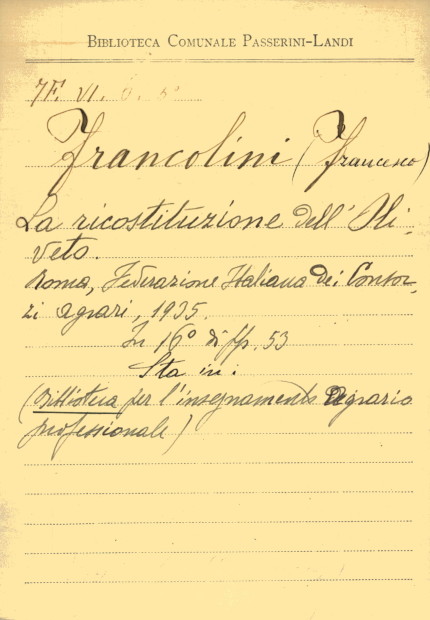 BIBLIOTECA COMUNALE PASSERINI-LANDI
7F. VI.
Francolini (Francesco)
La ricostituzione dell'Oli-
veto.
Roma, Federazione Italiana dei Consor-
zi agrari, 1935.
In 16° di pp. 53
Sta in:
(Biblioteca per l'insegnamento agrario
professionale)